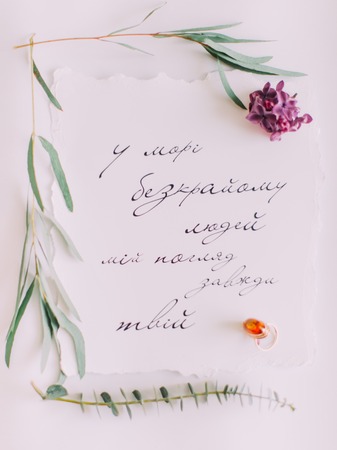 у морі
безкрайому
людей
мій погляд
завжди
твій